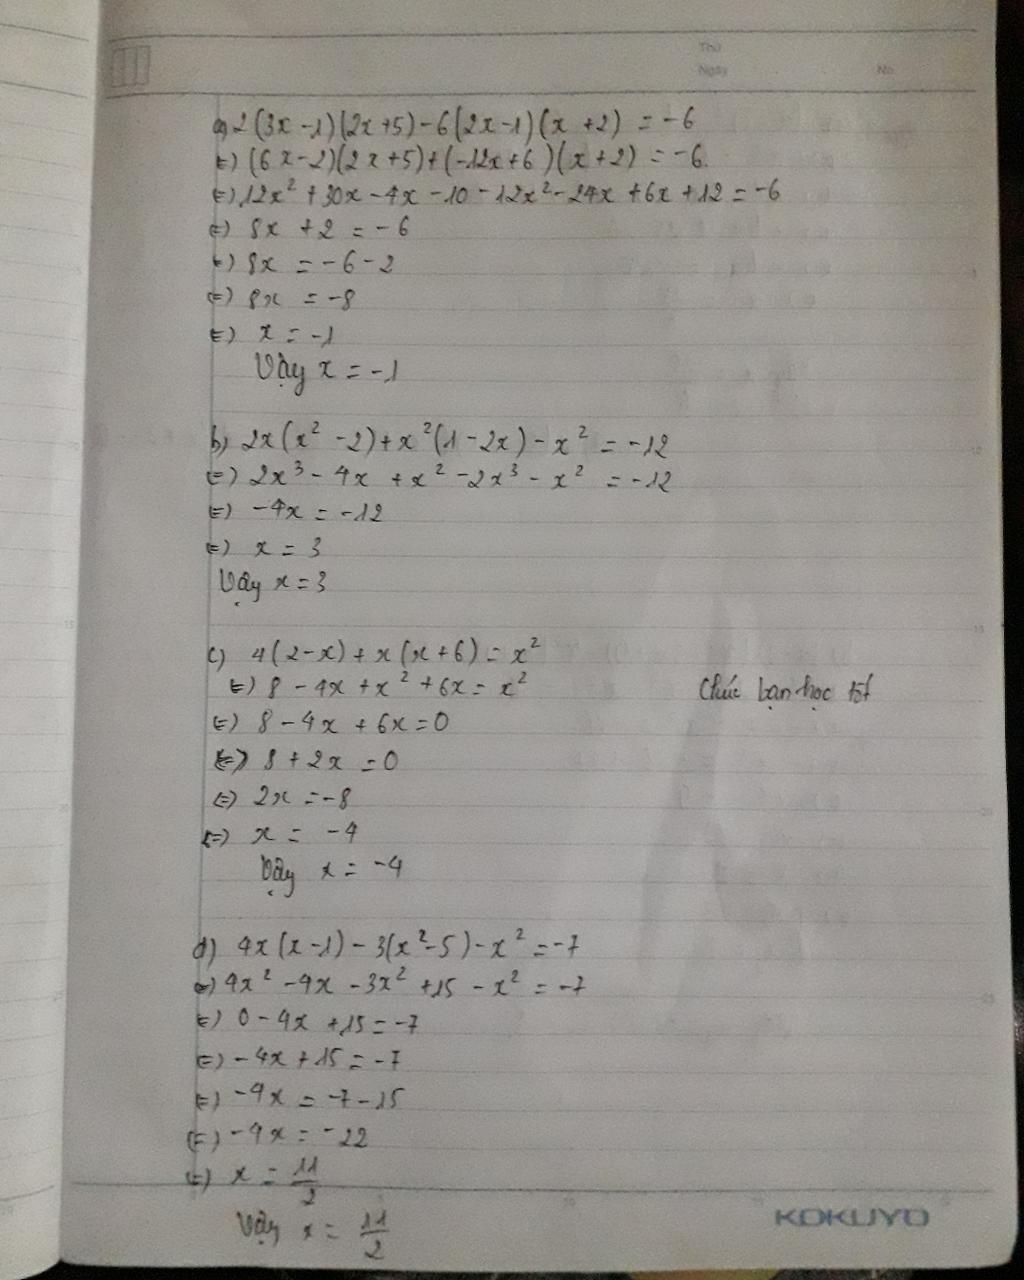 Thứ
Ngày No
a) 2(3x-1)(2x+5)-6(2x-1)(x+2) = -6
(=) (6x-2)(2x+5)+(-12x+6)(x+2) = -6.
(=) 12x² + 30x - 4x - 10 - 12x² - 24x + 6x + 12 = -6
(=) 8x + 2 = -6
(=) 8x = -6-2
(=) 8x = -8
(=) x = -1
Vậy x = -1
b) 2x(x² - 2) + x²(1 - 2x) - x² = -12
(=) 2x³ - 4x + x² - 2x³ - x² = -12
(=) -4x = -12
(=) x = 3
Vậy x = 3
c) 4(2-x) + x(x+6) = x²
(=) 8 - 4x + x² + 6x = x² Chúc bạn học tốt
(=) 8 - 4x + 6x = 0
(=) 8 + 2x = 0
(=) 2x = -8
(=) x = -4
Vậy x = -4
d) 4x(x-1) - 3(x²-5) - x² = -7
(=) 4x² - 4x - 3x² + 15 - x² = -7
(=) 0 - 4x + 15 = -7
(=) -4x + 15 = -7
(=) -4x = -7-15
(=) -4x = -22
(=) x = 11/2
Vậy x = 11/2
KOKUYO